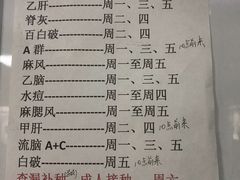 乙肝------周一、三、五
脊灰------周二、四
百白破------周二、四
A 群------周一、三、五 10点前来
麻风------周一至周五
乙脑------周一、三、五
水痘------周一至周五
麻腮风------周一至周五
甲肝------周二、四 10点前来
流脑 A+C------周一、三、五
白破------周五 10点前来
查漏补种 成人接种 周六